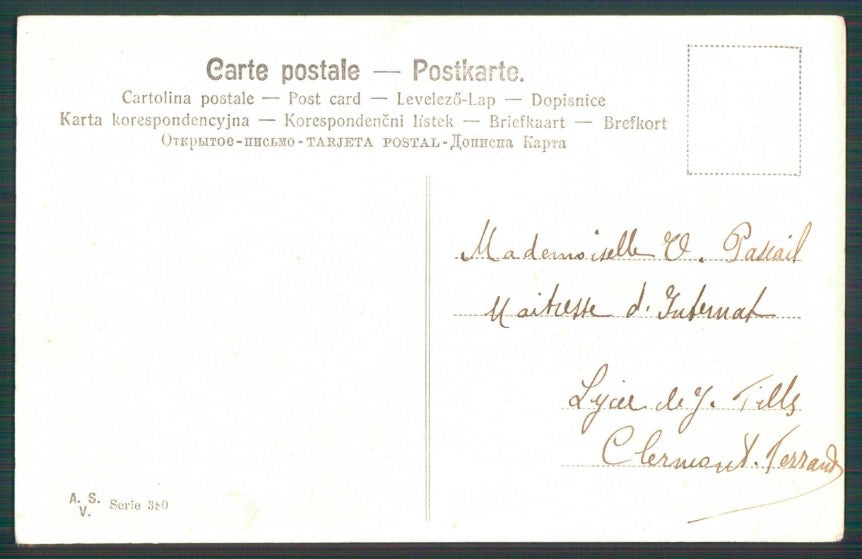 Carte postale — Postkarte.
Cartolina postale — Post card — Levelező-Lap — Dopisnice
Karta korespondencyjna — Korespondenčni lístek — Briefkaart — Brefkort
Открытое-письмо-TARJETA POSTAL-Дописна Карта
Mademoiselle V. Pascail
Maitresse d'Internat
Lycée de J. Filles
Clermont-Ferrand
A. S.
V.
Serie 380